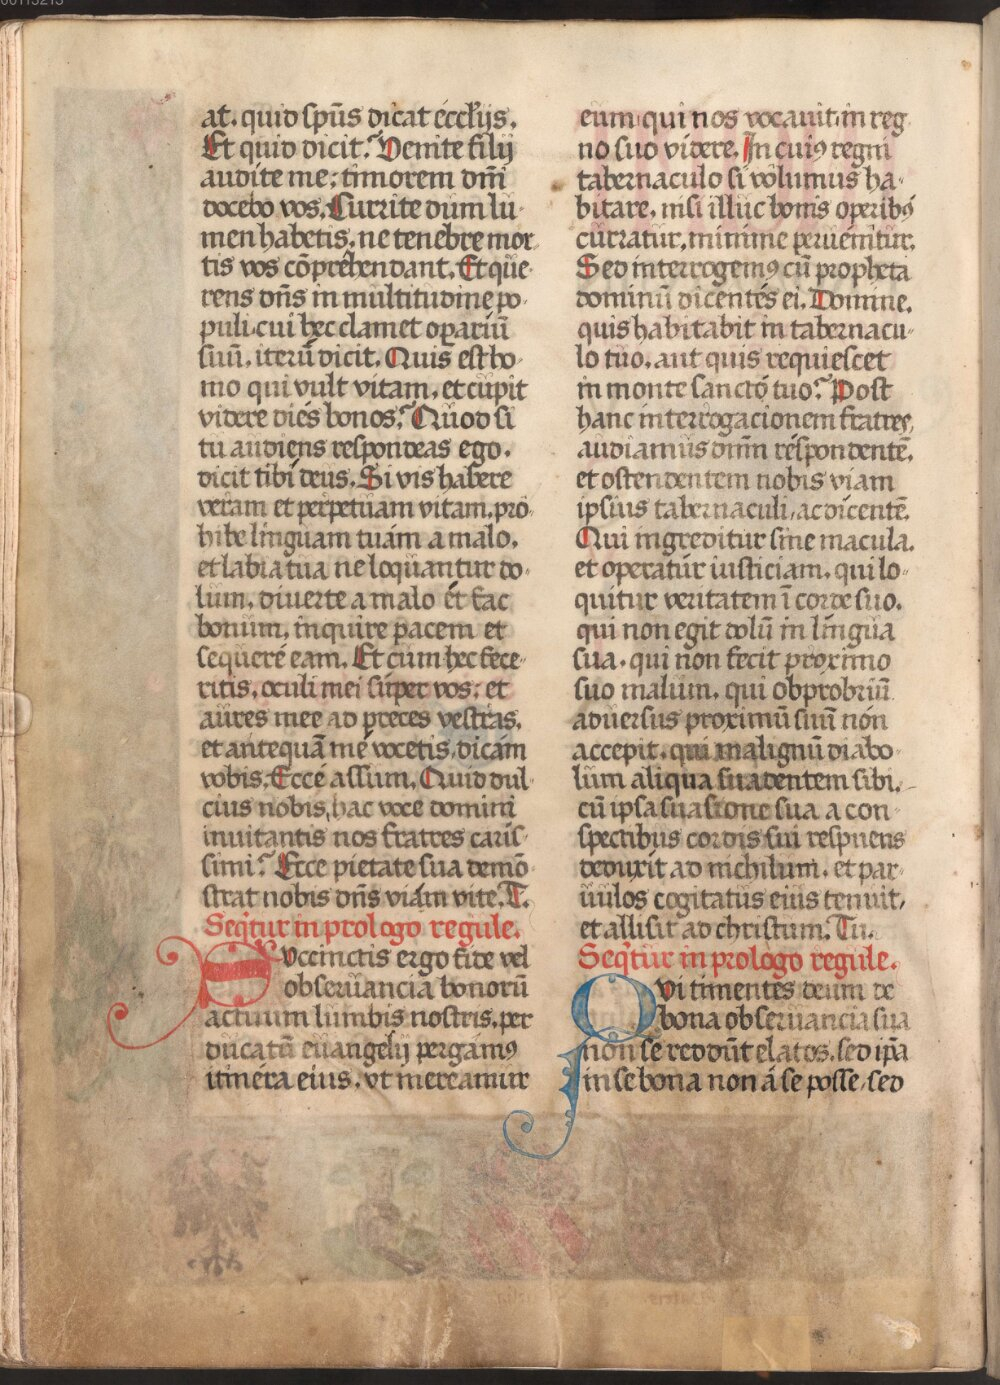 at. quid sp̄us dicat eccl'ijs.
Et quid dicit? Venite filij
audite me: timorem dn̄i
docebo vos. Currite dum lu-
men habetis, ne tenebre mor
tis vos cōprehendant. Et que-
rens dn̄s in multitudine po-
puli cui hec clamet operariū
suū, iterū dicit. Quis est ho-
mo qui vult vitam, et cupit
videre dies bonos? Quod si
tu audiens respondeas ego.
dicit tibi deus. Si vis habere
veram et perpetuam vitam, pro-
hibe linguam tuam a malo.
et labia tua ne loquantur do-
lum. diuerte a malo et fac
bonum, inquire pacem et
sequere eam. Et cum hec fece-
ritis, oculi mei super vos: et
aures mee ad preces vestras.
et antequā me vocetis. dicam
vobis. Ecce assum. Quid dul-
cius nobis, hac voce domini
inuitantis nos fratres caris-
simi? Ecce pietate sua demō-
strat nobis dn̄s viam vite. T.
Seq̄tur in prologo regule.
Succinctis ergo fite vel
obseruancia bonorū
actuum lumbis nostris, per
ducatū euangelij pergamꝯ
itinera eius. vt mereamur
eum qui nos vocauit in reg
no suo videre. In cuiꝯ regni
tabernaculo si volumus ha-
bitare, nisi illuc bonis operibꝯ
curratur, minime peruenitur.
Sed interrogemꝯ cū propheta
dominū dicentes ei. Domine.
quis habitabit in tabernacu-
lo tuo, aut quis requiescet
in monte sancto tuo? Post
hanc interrogacionem fratres,
audiamus dn̄m respondentē.
et ostendentem nobis viam
ipsius tabernaculi, ac dicentē.
Qui ingreditur sine macula.
et operatur iusticiam. qui lo-
quitur veritatem ī corde suo.
qui non egit dolū in lingua
sua. qui non fecit proximo
suo malum. qui obprobriū
aduersus proximū suū non
accepit. qui malignū diabo-
lum aliqua suadentem sibi.
cū ipsa suasione sua a con-
spectibus cordis sui respuens
deduxit ad nichilum. et par-
uulos cogitatus eius tenuit,
et allisit ad christum. Tu.
Seq̄tur in prologo regule.
Qui timentes deum de
bona obseruancia sua
non se reddūt elatos. sed ip̄a
in se bona non a se posse, sed